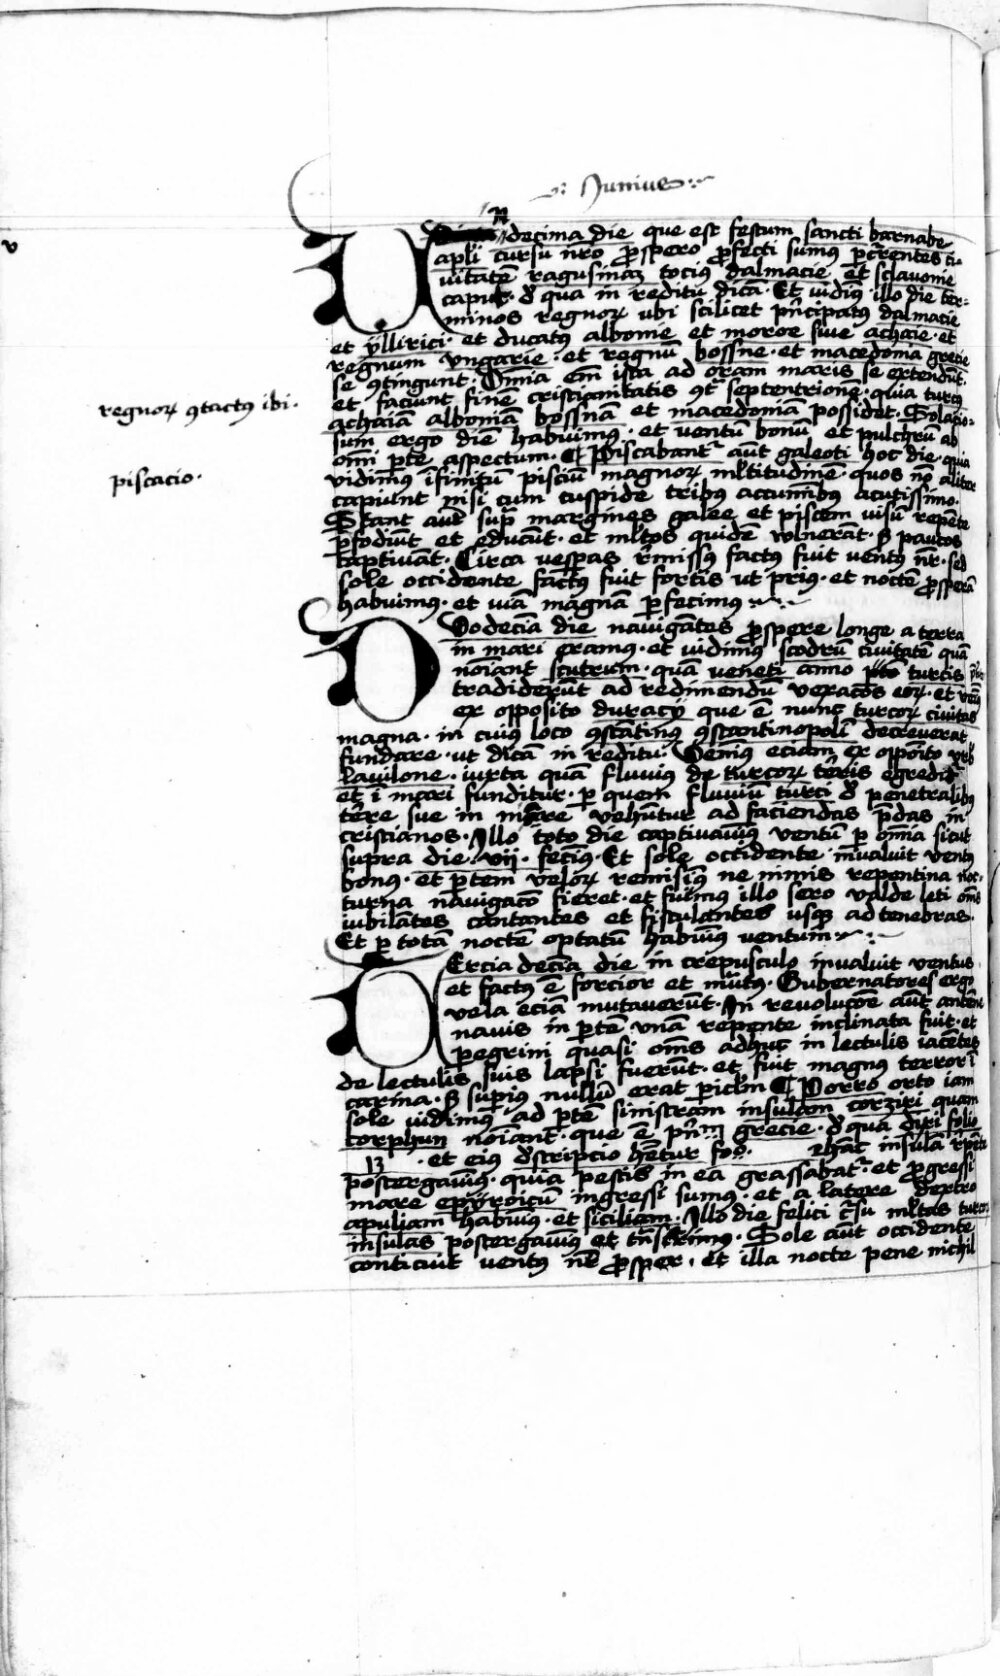 Junius
v
Undecima die que est festum sancti barnabe
apli cursu nr̄o prospero profecti sumus pretereuntes ci-
uitatē ragusinaꝫ tocius dalmacie et sclauonie
caput. de qua in reditu dicā. Et vidimꝰ illo die ter-
minos regnoꝝ ubi scilicet prīcipatꝰ dalmacie
et yllirici. et ducatꝰ albonie et moree siue achaie. et
regnum vngarie. et regnū bossne. et macedonia grecie
se ꝯtingunt. Om̄ia em̄ ista ad oram maris se extendūt.
et faciunt finē cristianitatis ꝯtra septentrionē. quia turcꝰ
achaiā alboniam bossnā et macedoniā possidet. Solacio-
sum ergo diē habuimꝰ. et ventū bonū et pulchrū ab
om̄i pte aspectum. Piscabantr aūt galeoti hoc die. quia
vidimꝰ īfinitū pisciū magnoꝝ ml̄titudinē. quos nō aliter
capiunt nisi cum cuspide tribus accuminibus acutissimo.
Stant autē supra margines galee et piscem visū repēte
pfodiūt et educūt. et ml̄tos quidē vulnerāt. sꝫ paucos
captiuāt. Circa vesperas remissꝰ factꝰ fuit ventꝰ nr̄. sed
sole occidente factꝰ fuit fortis ut priꝰ. et noctē prosperā
habuimꝰ. et viā magnā perfecimꝰ
regnoꝝ ꝯtactꝰ ibi.
piscacio.
Duodecīa die nauigātes prospere longe a terra
in mari eramꝰ. et vidimꝰ scodrū ciuitatē quā
noīant scutrum. quā veneti anno turcis
tradiderūt ad redimendū vexacōes eoꝝ. et
ex opposito duracij que ē nunc turcoꝝ ciuitas
magna. in cuiꝰ loco ꝯstātinꝰ ꝯstantinopolī decreuerat
fundare. ut dicā in reditu. Venimꝰ eciam ex opposito vrbꝭ
lauilone. iuxta quā fluuius de turcoꝝ terris egredit
et ī mari funditur. per quem fluuiū turci de penetralibꝰ
terre sue in mare vehūtur ad faciendas pdas in
cristianos. Illo toto die captiuauimꝰ ventū per om̄ia sicut
supra die vij. fecimꝰ. Et sole occidente inualuit ventꝰ
bonꝰ. et ptem veloꝝ remisimꝰ ne nimis repentina noc-
turna nauigacō fieret. et fuimꝰ illo sero valde leti om̄s
iubilātes cantantes et fistulantes usqꝫ ad tenebras.
Et per totā noctē optatū habuimꝰ ventum
Tercia decīa die in crepusculo inualuit ventus
et factꝰ ē forcior et mutatꝰ. Gubernatores ergo
vela eciā mutauerūt. In reuolucōe aūt antēne
nauis in ptē vnā repente inclinata fuit. et
peregrini quasi om̄s adhuc in lectulis iacētes
de lectulis suis lapsi fuerūt. et fuit magnus terror ī
carina. sꝫ superiꝰ nullū erat piclm Porro orto iam
sole vidimꝰ ad ptē sinistram insulam corziri quam
corphun noīant. que ē grecie. de qua dixi folio
13 . et eiꝰ descriptio hētur fo. hāc insulā
postergauimꝰ. quia pestis in ea grassabat. et progressi
mare epyroicū ingressi sumus. et a latere dextro
apuliam habuimꝰ. et siciliam. Illo die felici cursu ml̄tas turcoꝝ
insulas postergauimꝰ et
Sole aūt occidente
conticuit ventꝰ nr̄ prosper. et illa nocte pene nichil